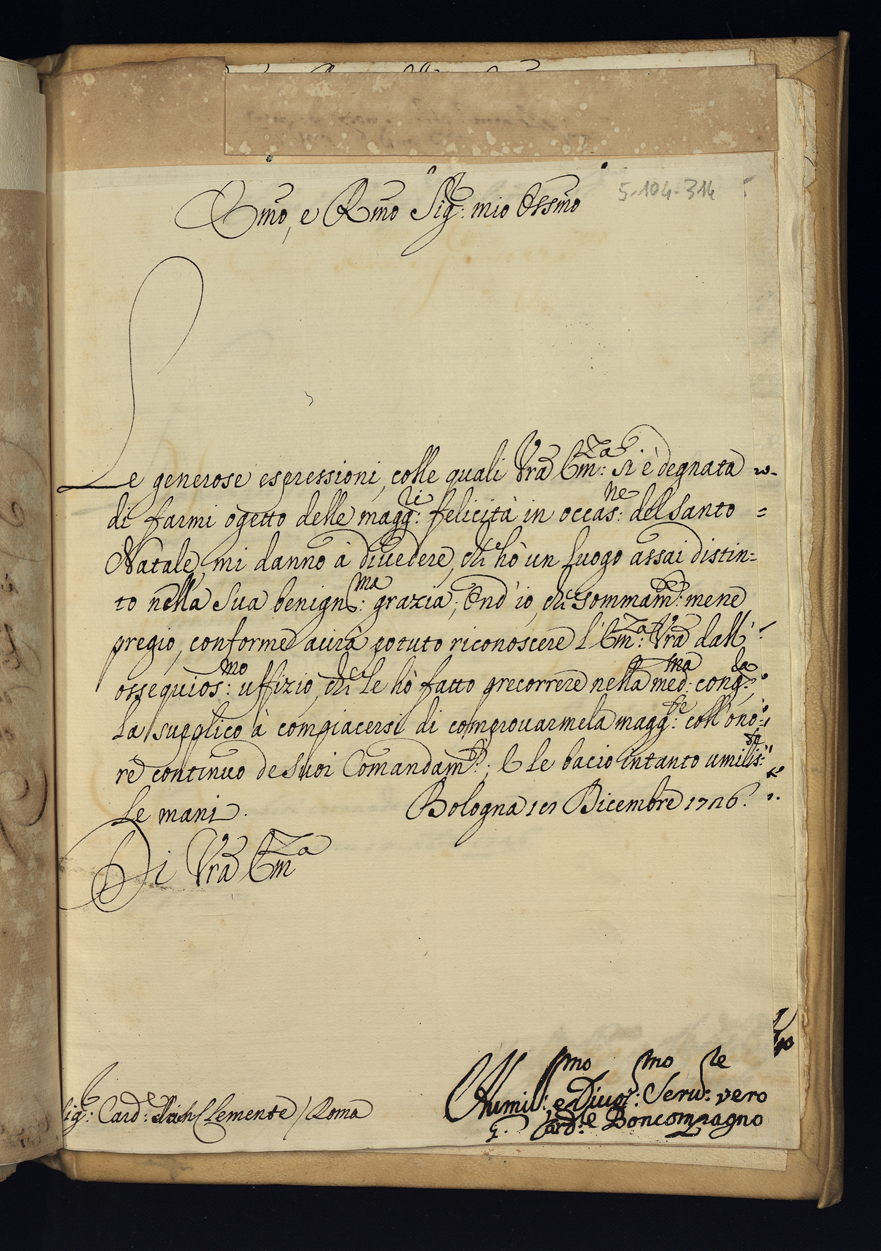 5-104-314
Emo, e Rmo Sig: mio Ossmo
Le generose espressioni, colle quali Vra Em:za si è degnata
di farmi ogetto delle magg:ri felicità in occas:ne del Santo =
Natale, mi danno à divedere, che hò un luogo assai distin=
to nella Sua benign:ma grazia; Ond' io, che sommam:te mene
pregio, conforme aurà potuto riconoscere l'Em:za Vra dall'
ossequios:mo uffizio, che le hò fatto precorrere nella med:ma cong:ra
La supplico à compiacersi di comprovarmela magg:te coll'ono=
re continuo de suoi Comandam:ti; E le bacio intanto umiliss:te
le mani. Bologna Dicembre 1726.
Di Vra Emza
Sig: Card:e Clemente / Roma
Humil:mo e Divot:mo Seru:re vero
G. Card:le Boncompagno